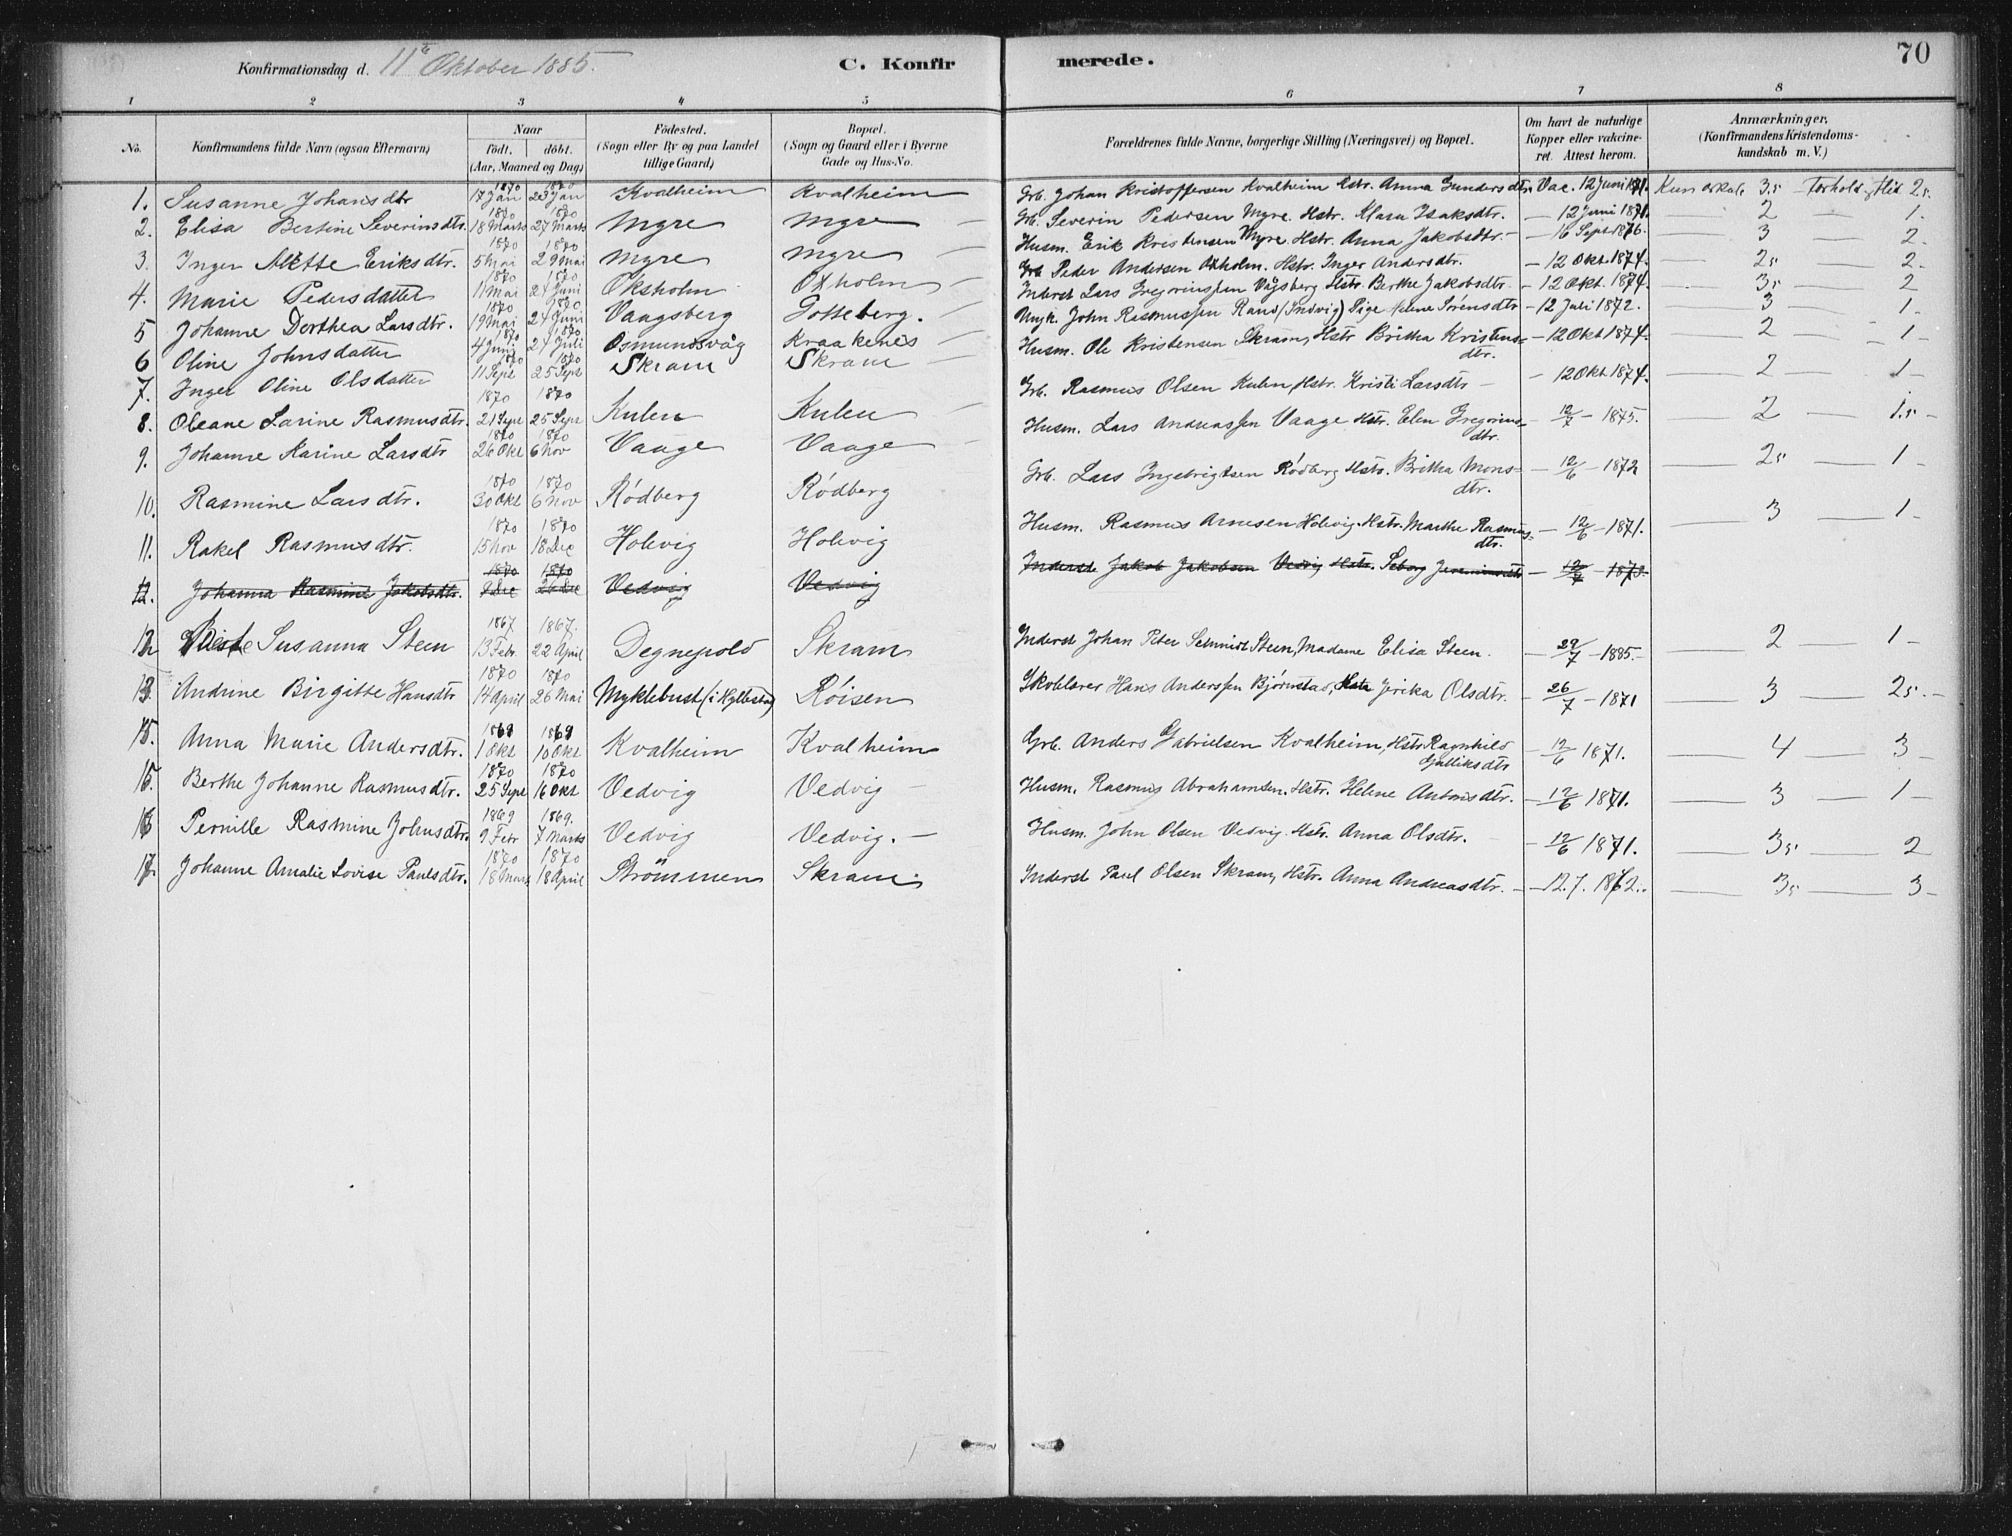 Konfirmationsdag d. 11te Oktober 1885. C. Konfirmerede. 70
1 2 3 4 5 6 7 8
No. Konfirmandens fulde Navn (ogsaa Efternavn) Naar født, døbt. (Aar, Maaned og Dag) Fødested. (Sogn eller By og paa Landet tillige Gaard) Bopæl. (Sogn og Gaard eller i Byerne Gade og Hus-No. Forældrenes fulde Navne, borgerlige Stilling (Næringsvei) og Bopæl. Om havt de naturlige Kopper eller vakcineret. Attest herom. Anmærkninger. (Konfirmandens Kristendomskundskab m. V.)
1. Susanne Johansdtr 1870 17 Jan 1870 23 Jan Kvalheim Kvalheim Grb. Johan Kristoffersen Kvalheim Hstr. Anna Gundersdtr. Vac. 12 Juni 1871. Kun 3.5 Forhold Flid 2.5
2. Elisa Bertine Severinsdtr. 1870 18 Marts 1870 27 Marts Myre Myre — Grb. Severin Pedersen Myre. Hstr. Klara Isaksdtr. — 12 Juni 1871. 2 — 1.
3. Inger Alette Eriksdtr. 1870 5 Mai 1870 29 Mai Myre Myre — Husm. Erik Kristensen Myre. Hstr. Anna Jakobsdtr. — 16 Sept 1876. 3 — 2.
4. Marie Pedersdatter 1870 11 Mai 1870 24 Juni Oksholm Oxholm — Grb Peder Andersen Oxholm. Hstr. Inger Andersdtr. — 12 Okt 1874. 2.5 — 2.
5 Johanne Dorthea Larsdtr. 1870 19 Mai 1870 24 Juni Vaagsberg Gotteberg. — Inderst Lars Gregoriussen Vågsberg Hstr. Berthe Jakobsdtr — 12 Okt. 1874. 3.5 — 2
6 Oline Johnsdatter 1870 4 Juni 1870 24 Juli Osmundsvåg Kraakenes Ungk. John Rasmussen Rand (Indvig) Pige Helene Sørensdtr — 12 Juli 1872. 3 — 1.
7. Inger Oline Olsdatter 1870 11 Sept 1870 25 Sept Skram Skram Husm. Ole Kristensen Skram, Hstr Britha Kristensdtr. — 12 Okt 1874. 2 — 1 —
8. Oleane Larine Rasmusdtr. 1870 21 Sept 1870 25 Sept Kulen Kulen — Grb. Rasmus Olsen Kulen, Hstr. Kristi Larsdtr — — 12 Okt 1874. 2 — 1 —
9. Johanne Karine Larsdtr 1870 26 Okt 1870 6 Nov Vaage Vaage — Husm. Lars Andreassen Vaage Hstr. Elen Gregoriusdtr. — 12/7 — 1875. 2 — 1.5 —
10. Rasmine Larsdtr. 1870 30 Okt 1870 6 Nov Rødberg Rødberg Grb. Lars Ingebrigtsen Rødberg Hstr. Britha Monsdtr. — 12/6 — 1872 2.5 — 1 —
11. Rakel Rasmusdtr. 1870 15 Nov 1870 18 Dec Holevig Holevig Husm. Rasmus Arnesen Holevig. Hstr. Marthe Rasmusdtr. — 12/6 — 1871. 3 — 1 —
12. Johanna Rasmine Jakobsdtr. 1870 9 Dec 1870 26 Dec Vedvig Vedvig Inderst Jakob Jakobsen Vedvig Hstr. Seborg Jeremiasdtr — 12/7 — 1873.
12 Susanna Steen 1867 13 Febr. 1867. 22 April Degnepold Skram Inderst Johan Peter Schmidt Steen, Madame Elisa Steen. — 29/7 — 1885. — 2 1 —
13. Andrine Birgitte Hansdtr 1870 14 April 1870 26 Mai Myklebust (i Hyllestad) Røisen Skolelærer Hans Anderssen Bjørnstad, Hstr Jerika Olsdtr. — 26/7 — 1871 3 — 2.5. —
15. Anna Marie Andersdtr. 1869 1 Okt 1869 10 Okt Kvalheim Kvalheim Grb. Anders Gabrielsen Kvalheim, Hstr Ragnhild Gulliksdtr — 12/6 1871. 4 — 3 —
15. Berthe Johanne Rasmusdtr. 1870 25 Sept 1870 16 Okt Vedvig Vedvig — Husm. Rasmus Abrahamsen. Hstr. Helene Antonsdtr. — 12/6 1871. 3 — 1 —
16 Pernille Rasmine Johnsdtr. 1869 9 Febr 1869. 7 Marts Vedvig Vedvig. — Husm. John Olsen Vedvig. Hstr. Anna Olsdtr. — 12/6 1871. 3.5 — 2
17. Johanne Amalie Lovise Paulsdtr. 1870 18 Marts 1870 18 April Strömmen Skram. Inderst Paul Olsen Skram, Hstr. Anna Andreasdtr. — 12.7. 1872. 3.5 — 3 —